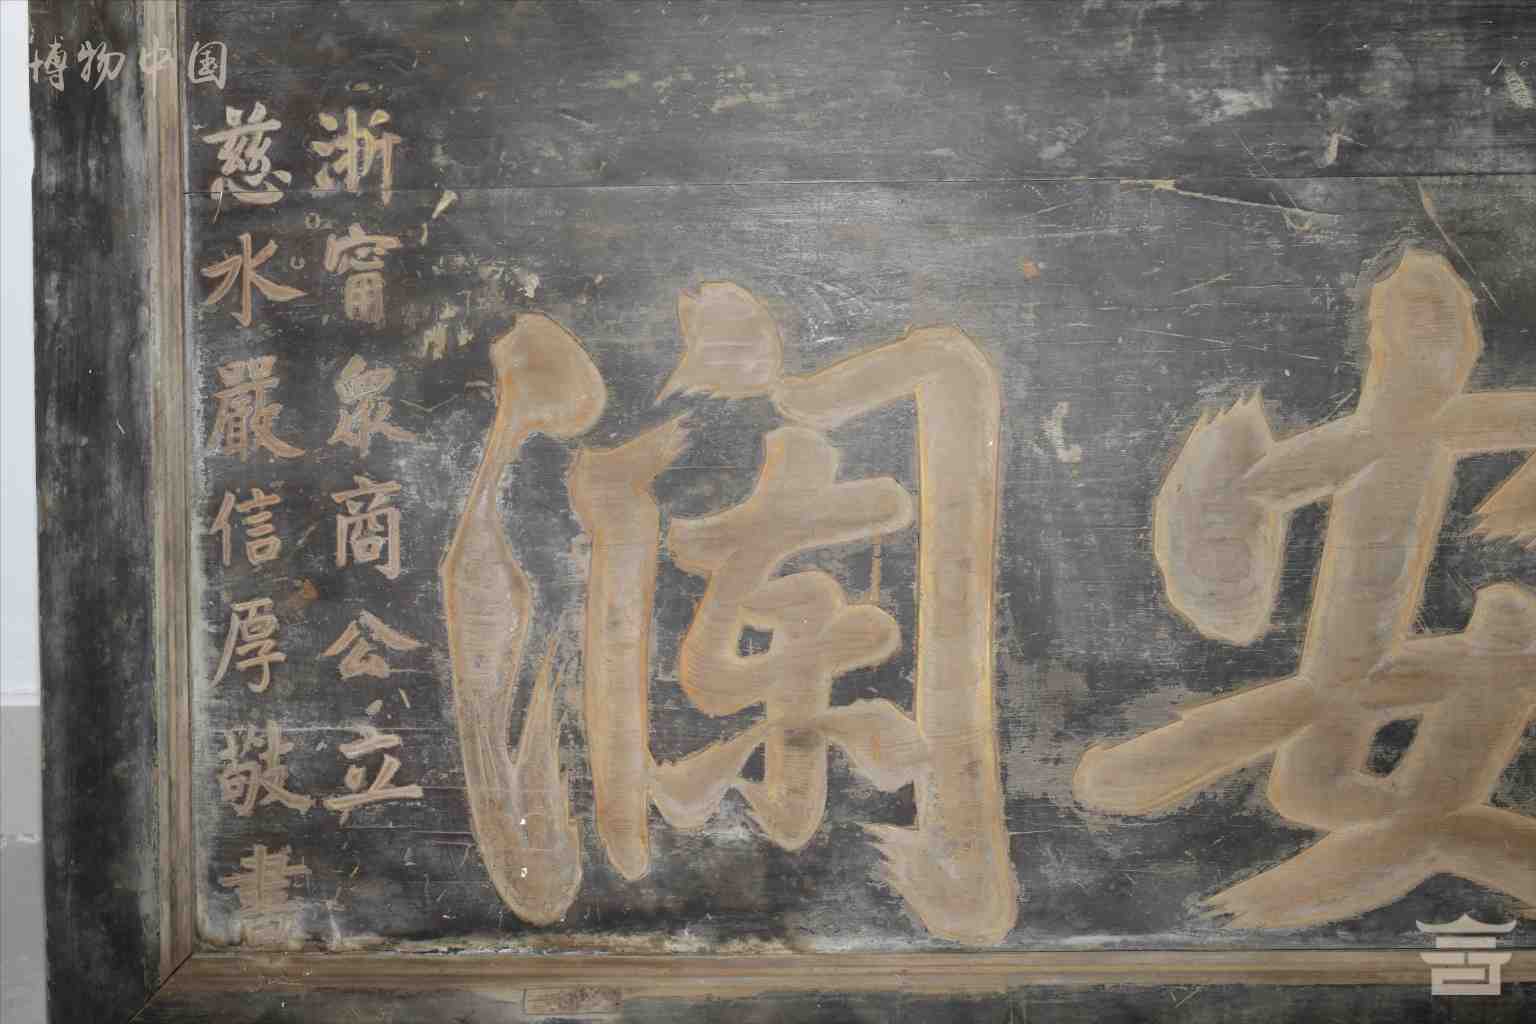 博物中国
安瀾
浙甯衆商公立
慈水嚴信厚敬書